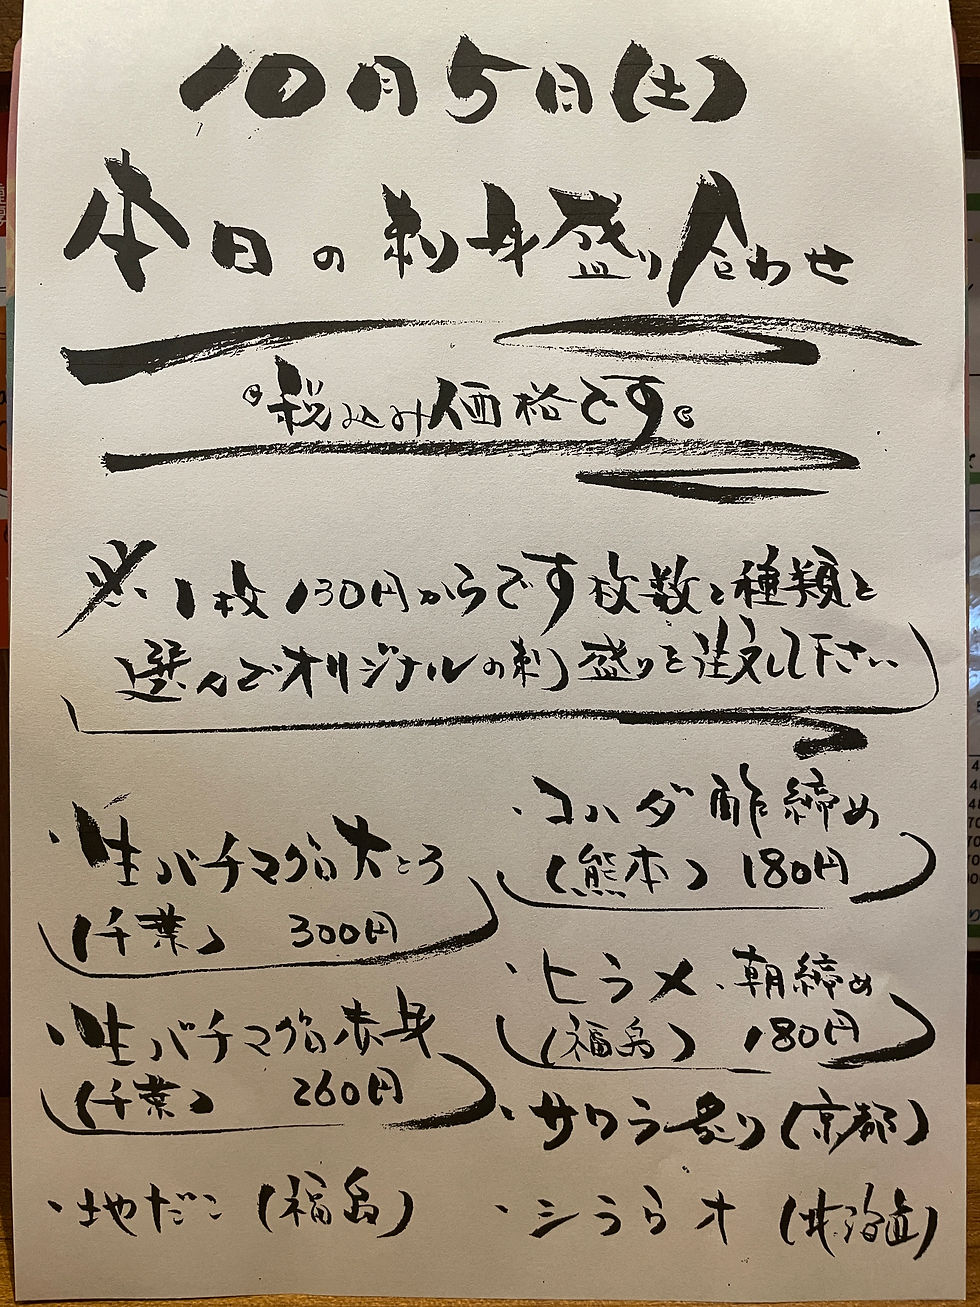 10月5日(土)
本日の刺身盛り合わせ
税込み価格です。
※1枚130円からです枚数と種類と
選んでオリジナルの刺し盛りを注文して下さい
・生バチマグロ大とろ
(千葉) 300円
・生バチマグロ赤身
(千葉) 260円
・地だこ (福島)
・コハダ酢締め
(熊本) 180円
・ヒラメ、朝締め
(福島) 180円
・サワラ炙り(京都)
・シラウオ (北海道)